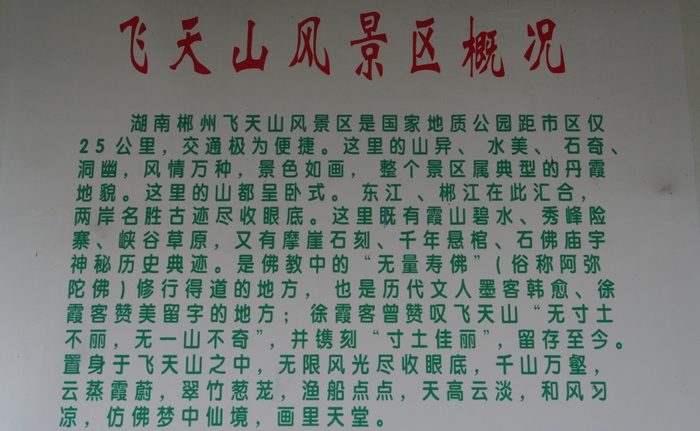 飞天山风景区概况
湖南郴州飞天山风景区是国家地质公园距市区仅
25公里，交通极为便捷。这里的山异、水美、石奇、
洞幽，风情万种，景色如画，整个景区属典型的丹霞
地貌。这里的山都呈卧式。东江、郴江在此汇合，
两岸名胜古迹尽收眼底。这里既有霞山碧水、秀峰险
寨、峡谷草原，又有摩崖石刻、千年悬棺、石佛庙宇
神秘历史典迹。是佛教中的“无量寿佛”(俗称阿弥
陀佛)修行得道的地方，也是历代文人墨客韩愈、徐
霞客赞美留字的地方；徐霞客曾赞叹飞天山“无寸土
不丽，无一山不奇”，并镌刻“寸土佳丽”，留存至今。
置身于飞天山之中，无限风光尽收眼底，千山万壑，
云蒸霞蔚，翠竹葱茏，渔船点点，天高云淡，和风习
凉，仿佛梦中仙境，画里天堂。